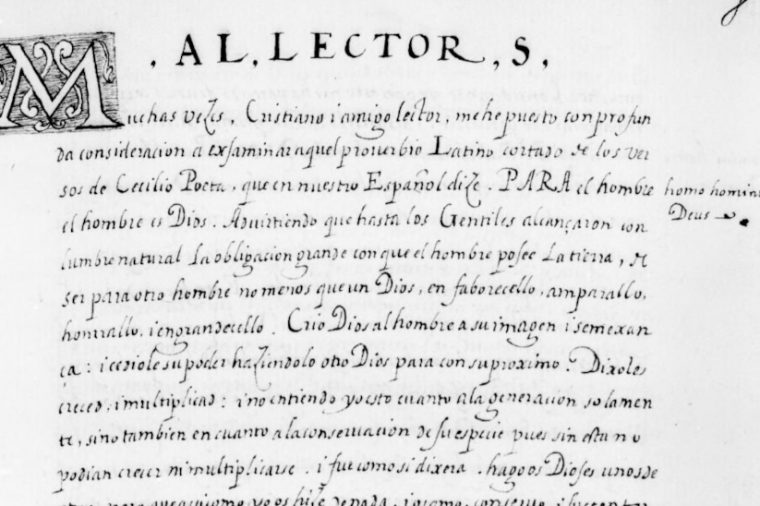 . AL, LECTOR, S,
Muchas vezes, Cristiano i amigo lector, me he puesto con profun
da consideracion a exsaminar aquel proverbio Latino cortado de los ver
sos de Cecilio Poeta, que en nuestro Español dize. PARA el hombre
homo homini
Deus
el hombre es Dios. Advirtiendo que hasta los Gentiles alcançaron con
lumbre natural la obligacion grande con que el hombre posee la tierra, de
ser para otro hombre no menos que un Dios, en faborecello, amparallo,
honrrallo, i engrandecello. Crio Dios al hombre a su imagen i semexan
ça: i cediole su poder haziendolo otro Dios para con su proximo. Dixoles
creced, i multiplicad: i no entiendo yo esto cuanto a la generacion solamen
te, sino tambien en cuanto a la conservacion de su especie pues sin esta no
podian crecer ni multiplicarse. i fue como si dixera. hago os Dioses unos de